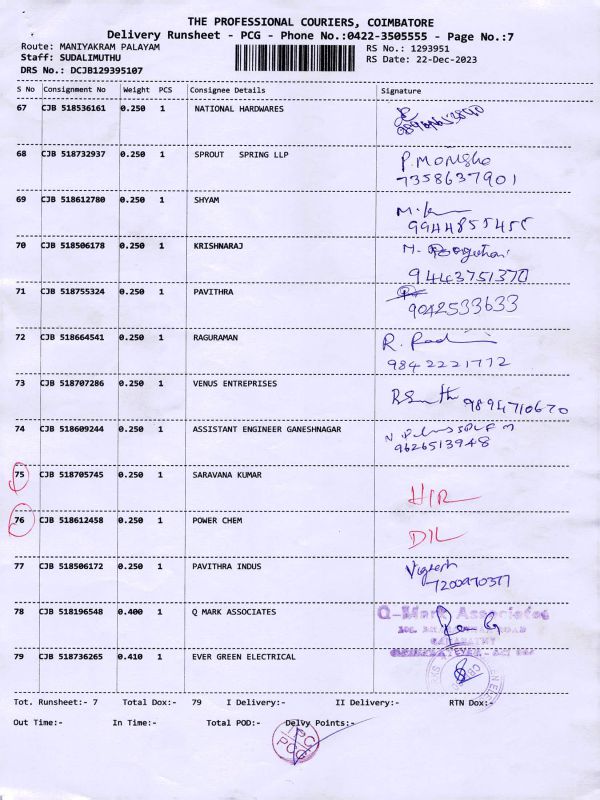 THE PROFESSIONAL COURIERS, COIMBATORE
Delivery Runsheet - PCG - Phone No.:0422-3505555 - Page No.:7
Route: MANIYAKRAM PALAYAM RS No.: 1293951
Staff: SUDALIMUTHU RS Date: 22-Dec-2023
DRS No.: DCJB129395107
S No Consignment No Weight PCS Consignee Details Signature
67 CJB 518536161 0.250 1 NATIONAL HARDWARES
68 CJB 518732937 0.250 1 SPROUT SPRING LLP P. 7358637901
69 CJB 518612780 0.250 1 SHYAM 9944855455
70 CJB 518506178 0.250 1 KRISHNARAJ 9443751370
71 CJB 518755324 0.250 1 PAVITHRA 9042533633
72 CJB 518664541 0.250 1 RAGURAMAN R. 9842221772
73 CJB 518707286 0.250 1 VENUS ENTREPRISES 9894710670
74 CJB 518609244 0.250 1 ASSISTANT ENGINEER GANESHNAGAR 9626513948
75 CJB 518705745 0.250 1 SARAVANA KUMAR
76 CJB 518612458 0.250 1 POWER CHEM D/L
77 CJB 518506172 0.250 1 PAVITHRA INDUS
78 CJB 518196548 0.400 1 Q MARK ASSOCIATES Q-Mark Associates
79 CJB 518736265 0.410 1 EVER GREEN ELECTRICAL
Tot. Runsheet:- 7 Total Dox:- 79 I Delivery:- II Delivery:- RTN Dox:-
Out Time:- In Time:- Total POD:- Delvy Points:-